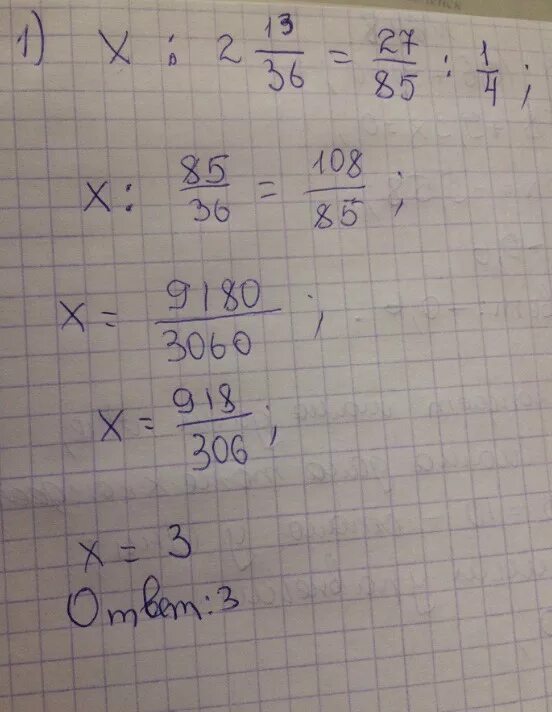 1) x : 2 13/36 = 27/85 : 1/4 ;
x : 85/36 = 108/85 ;
x = 9180/3060 ;
x = 918/306 ;
x = 3
Ответ: 3